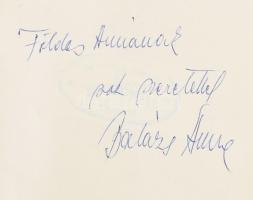 Földes Annának
sok szeretettel
Balázs Anna